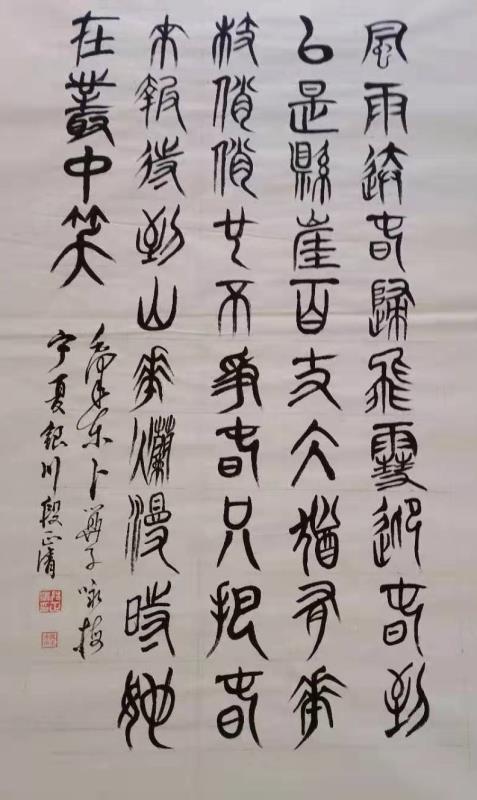 風雨送春歸飛雪迎春到
已是縣崖百丈仌猶有花
枝俏俏也不爭春只把春
來報待到山花爛漫時她
在叢中笑
毛澤東卜算子咏梅
宁夏銀川段正清